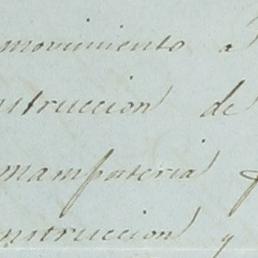 movimiento a
nstruccion de
mamposteria y
nstruccion y